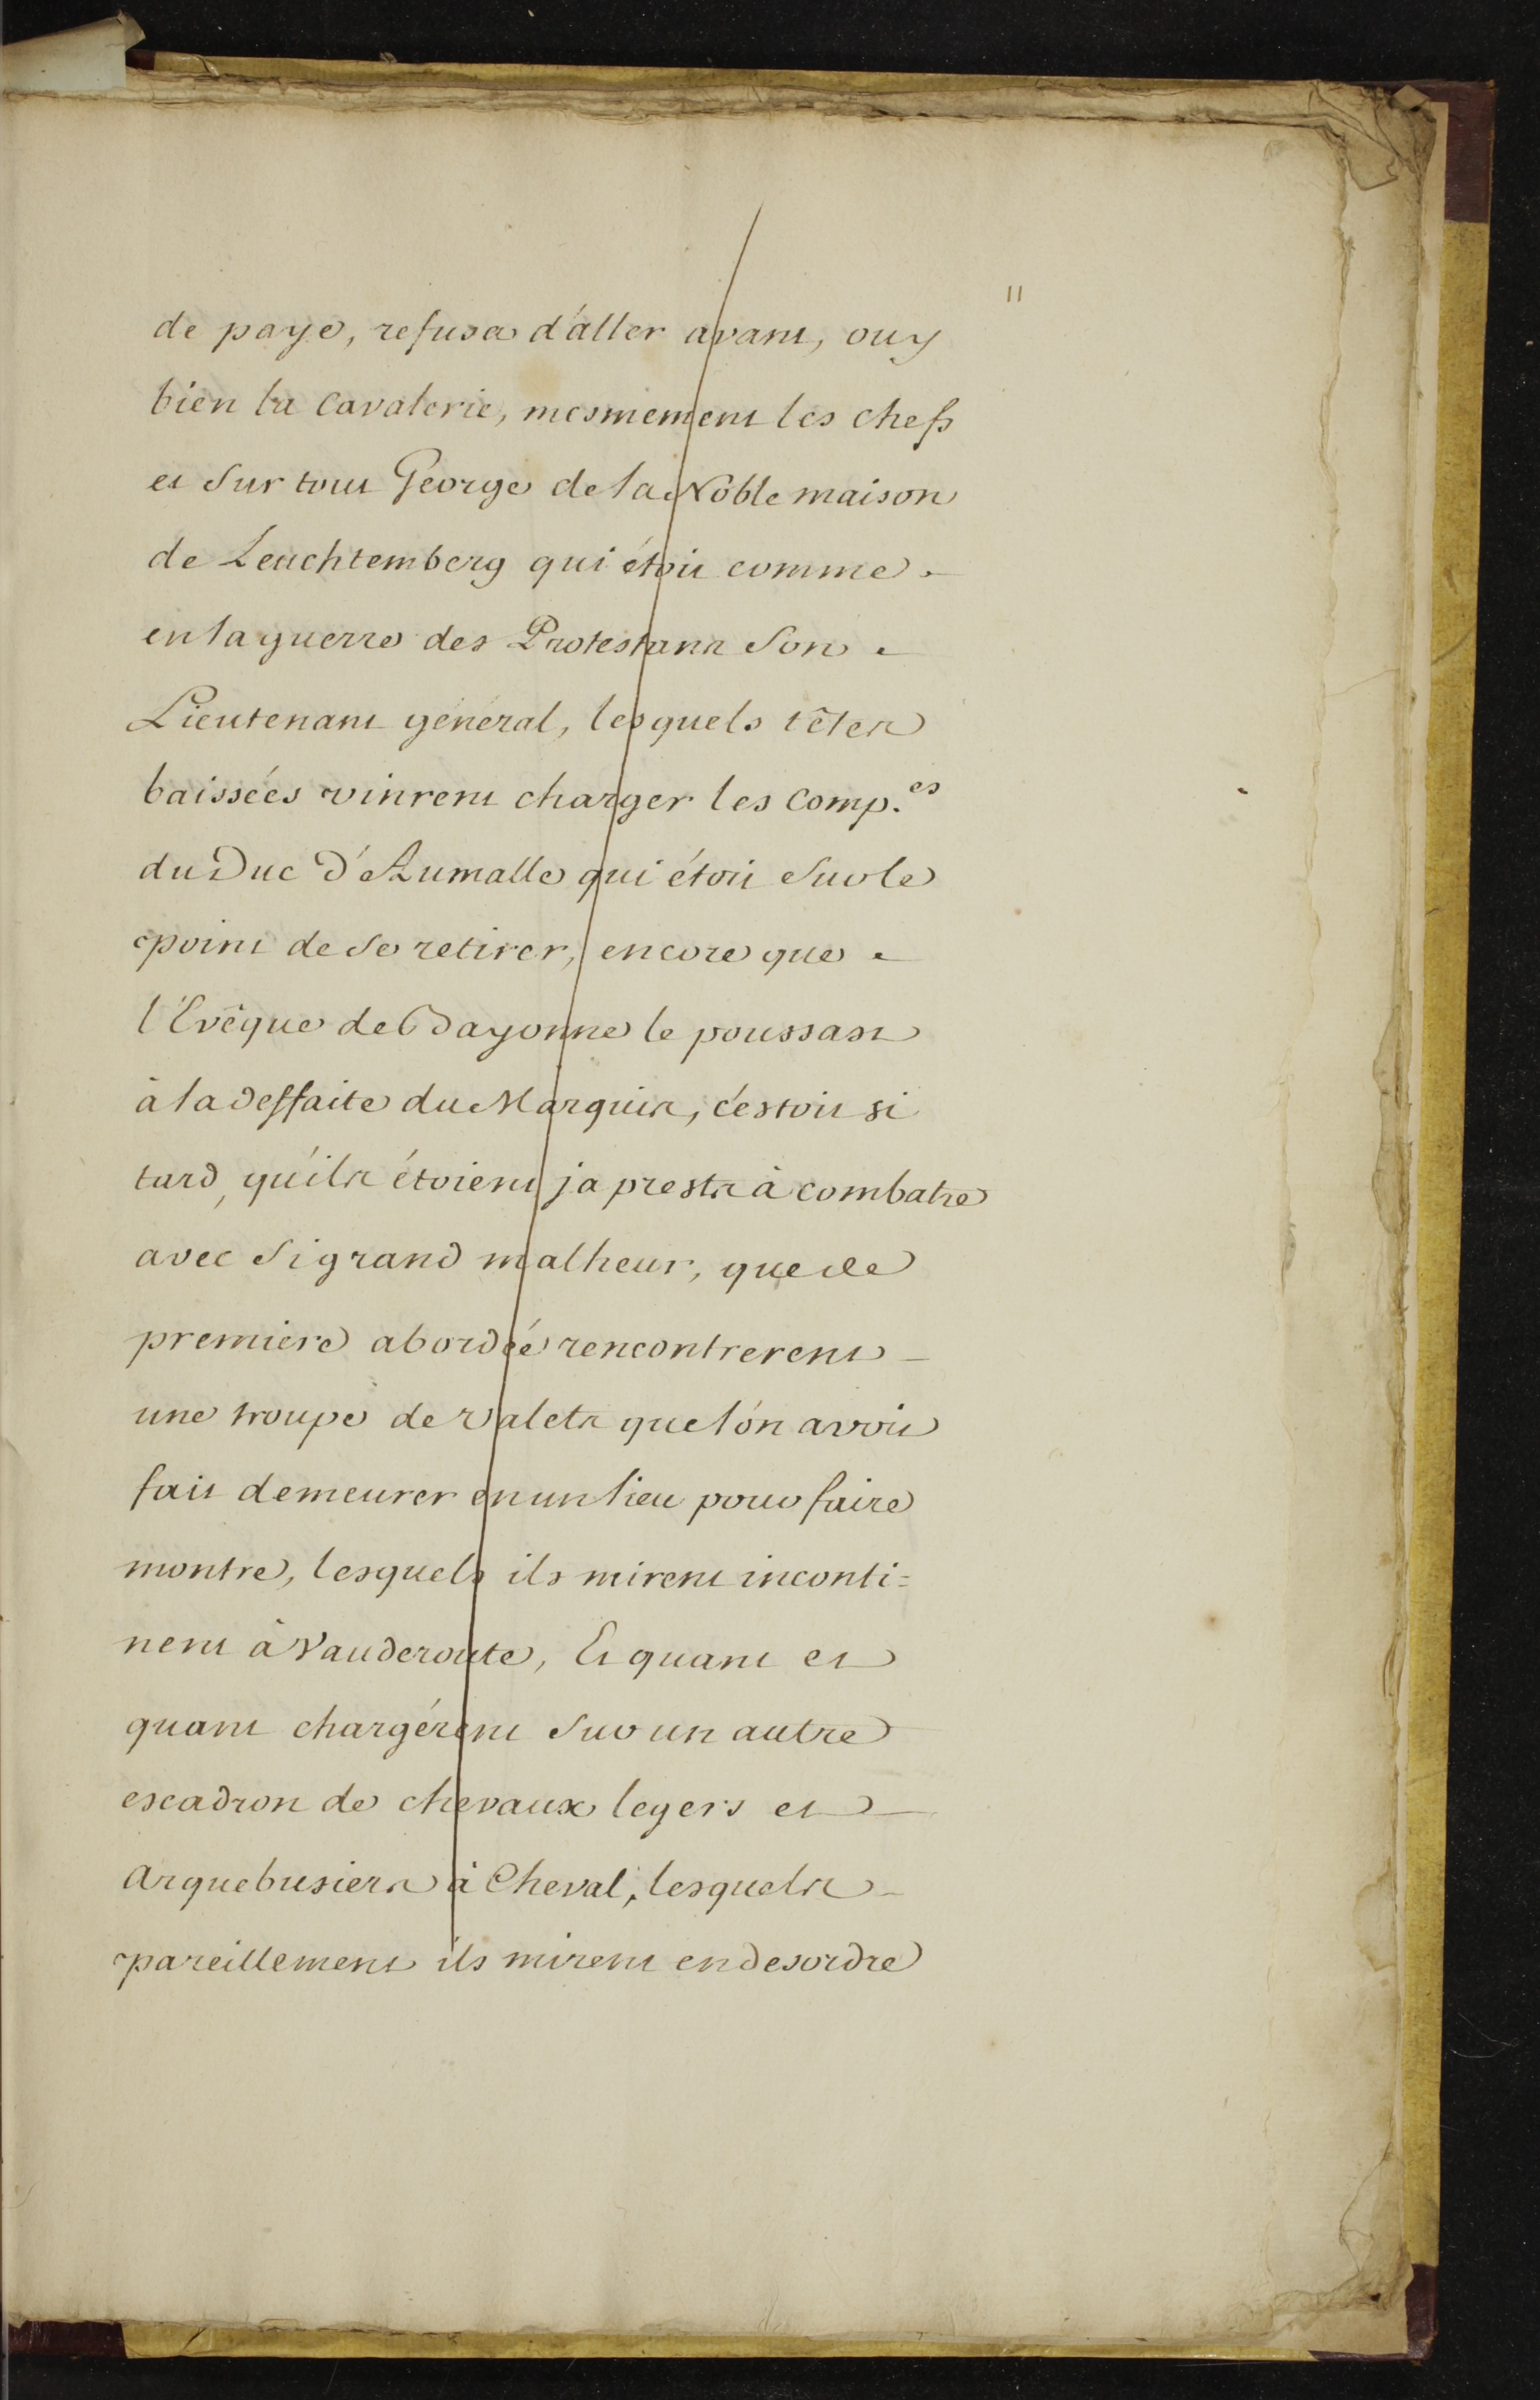 11
de paye, refusa d'aller avant, ouy
bien la Cavalerie, mesmement les chefs
et Sur tout George de la Noble maison
de Leuchtemberg qui étoit comme
en la guerre des Protestans Son
Lieutenant général, lesquels têtes
baissées vinrent charger les Comp.es
du Duc d'Aumalle qui étoit Sur le
point de Se retirer, encore que
l'Evêque de Bayonne le poussast
à la deffaite du Marquis, c'estoit si
tard, qu'ils étoient ja prests à combatre
avec Si grand malheur, que de
premiere abordée rencontrerent
une troupe de valets que l'on avoit
fait demeurer en un lieu pour faire
montre, lesquels ils mirent inconti=
nent à Vauderoute, Et quant et
quant chargérent Sur un autre
escadron de chevaux legers et
Arquebusiers à Cheval, lesquels
pareillement ils mirent en desordre